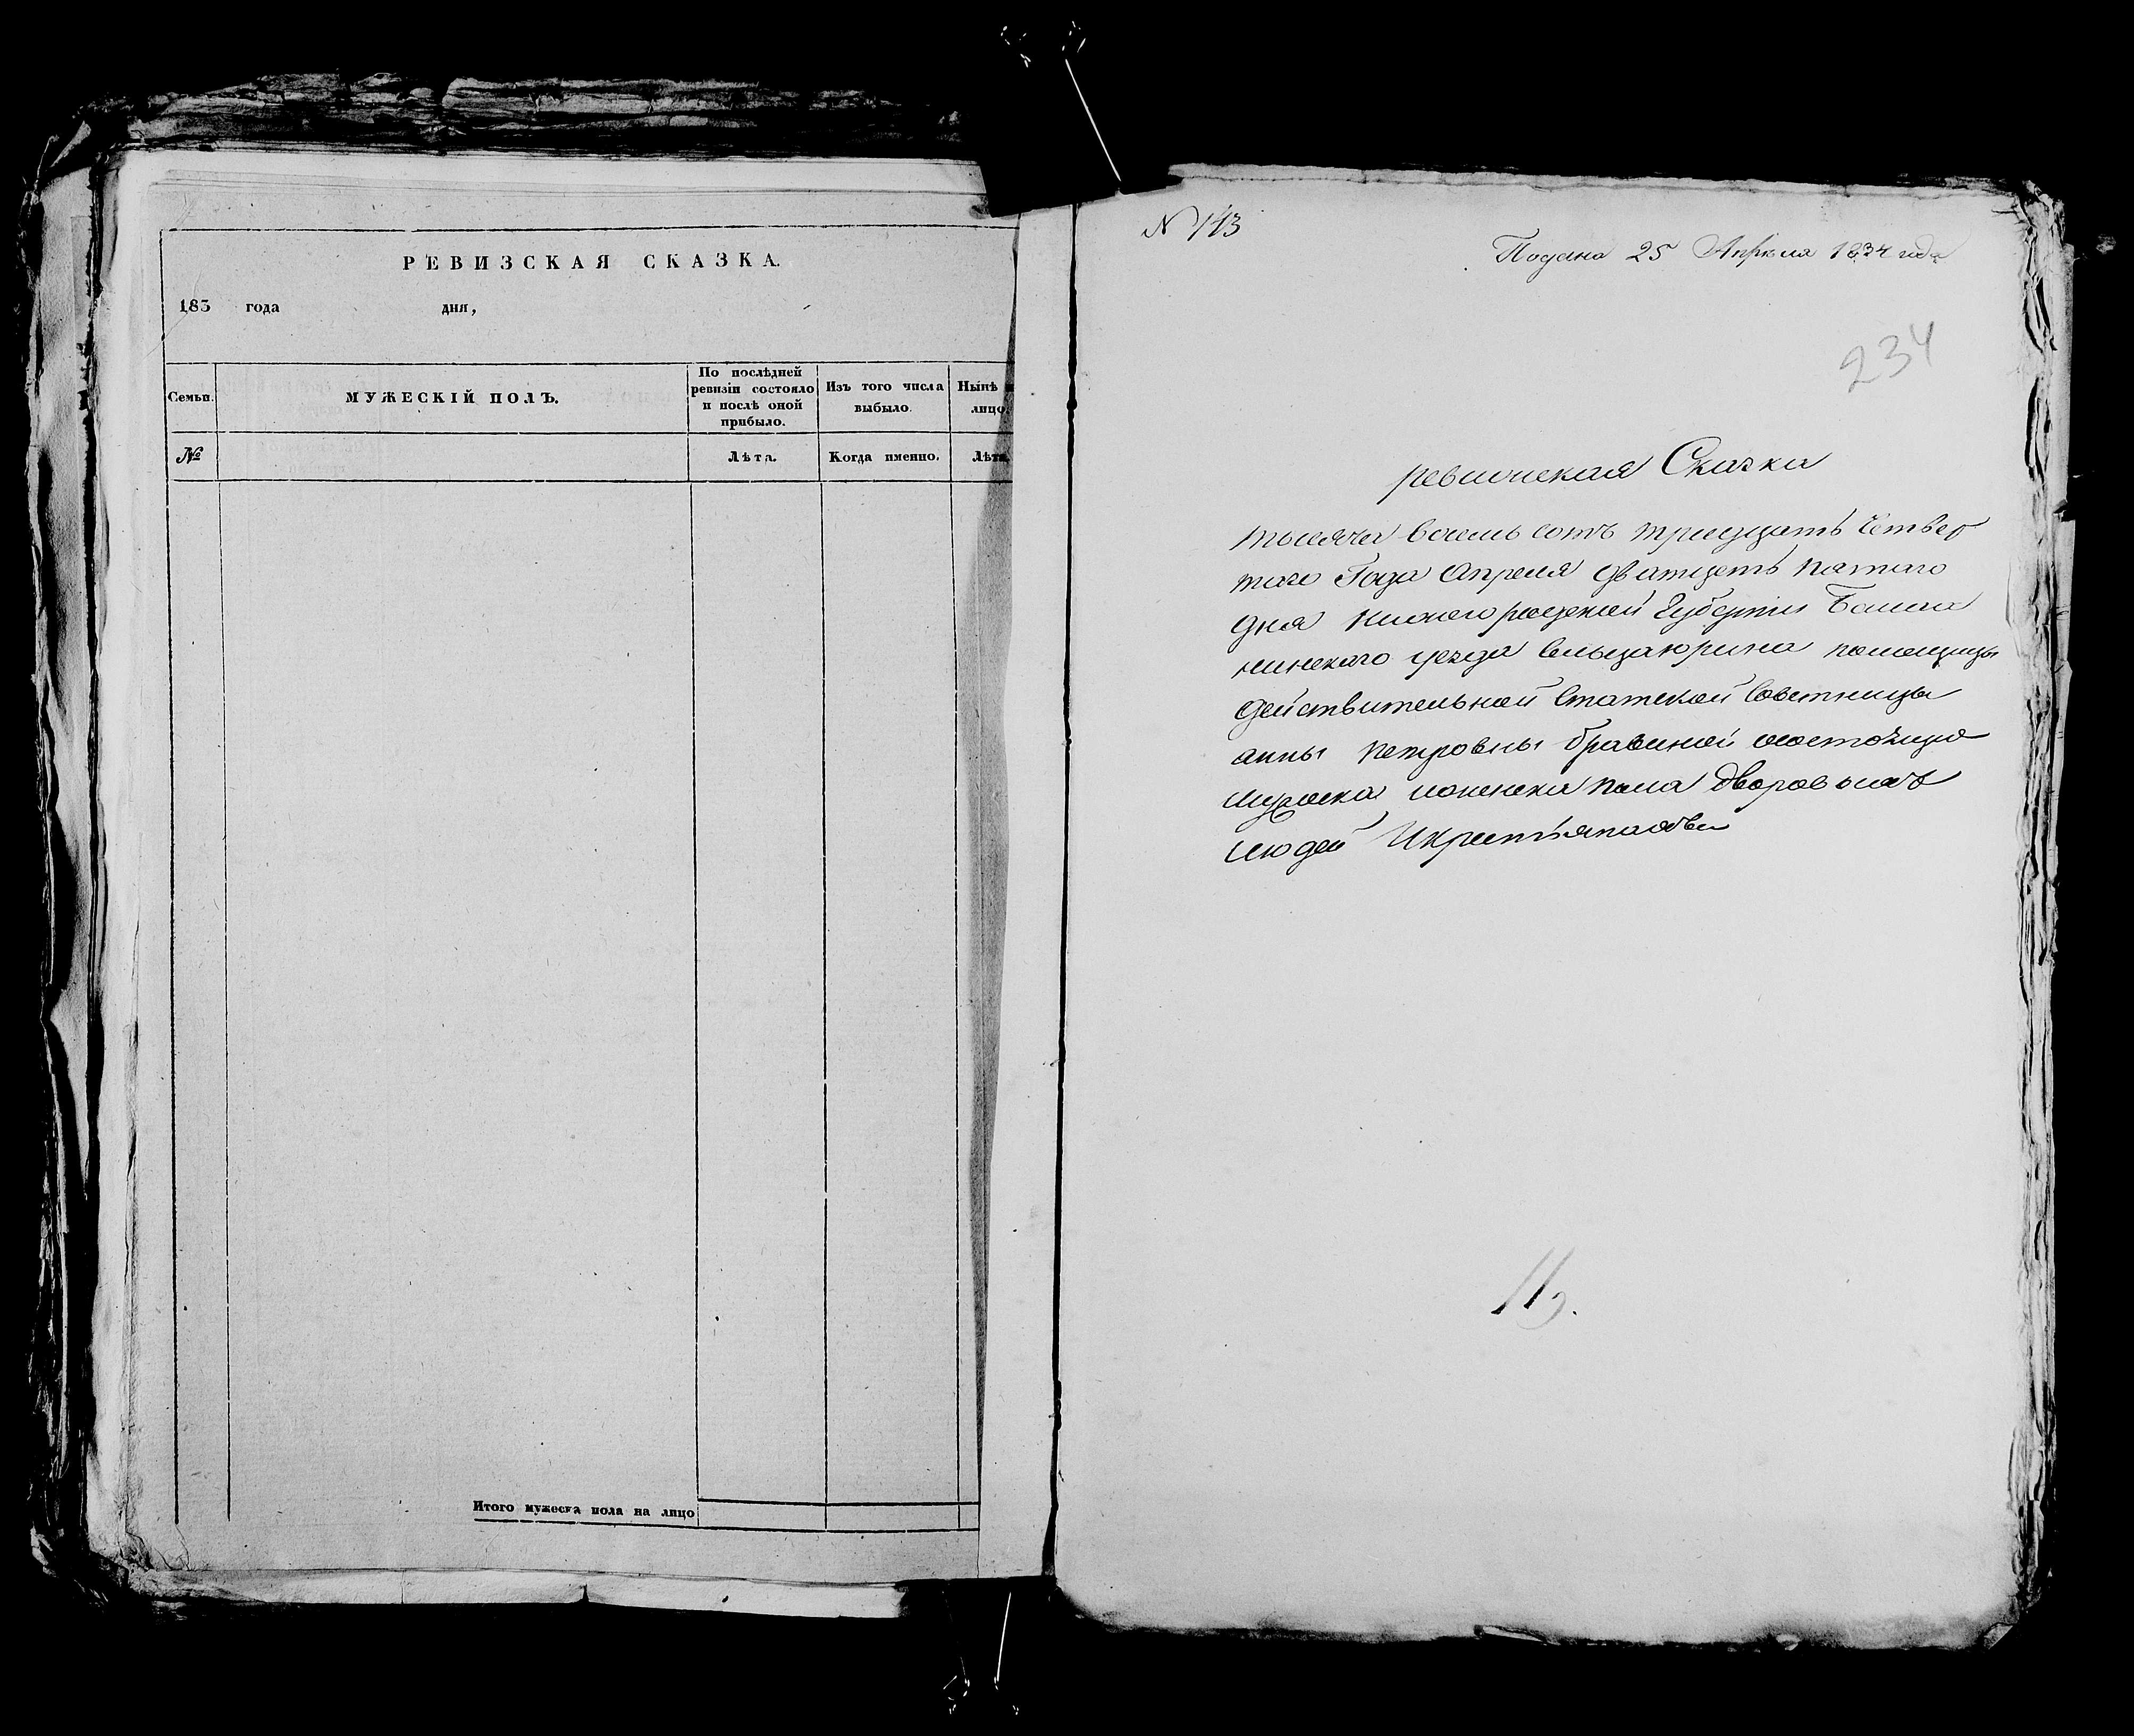 РЕВИЗСКАЯ СКАЗКА.
183 года дня,
Семьи.
МУЖЕСКІЙ ПОЛЪ.
По послѣдней ревизіи состояло и послѣ оной прибыло.
Изъ того числа выбыло.
Нынѣ
лицо.
№
Лѣта.
Когда именно.
Лѣта
Итого мужеска пола на лицо
N 113
Подана 25 Апреля 1834 года
234
ревижская Сказка
тысяча восемь сотъ тридцать четвер
таго Года Апреля дватцеть пятаго
дня нижегородской Губернии
уезда помещицы
действительной статской советницы
анны петровны
мужска иженска пола дворовыхъ
людей